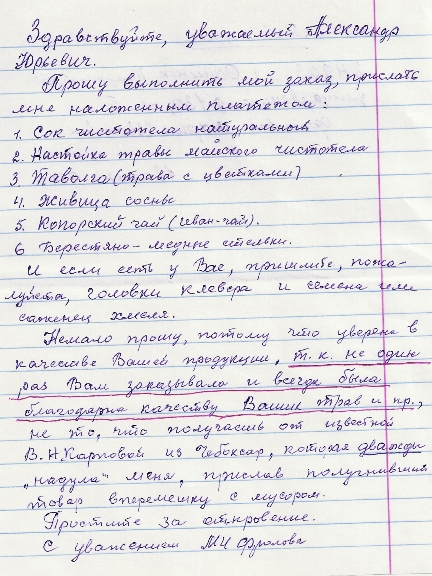 Здравствуйте, уважаемый Александр
Юрьевич.
Прошу выполнить мой заказ, прислать
мне наложенным платежом:
1. Сок чистотела натуральный
2. Настойка травы майского чистотела
3. Таволга (трава с цветками)
4. Живица сосны
5. Копорский чай (Иван-чай).
6 Берестяно-медные стельки.
И если есть у Вас, пришлите, пожа-
луйста, головки клевера и семена или
саженец хмеля.
Немало прошу, потому что уверена в
качестве Вашей продукции, т.к. не один
раз Вам заказывала и всегда была
благодарна качеству Ваших трав и пр.,
не то, что получаешь от известной
В.Н.Карповой из Чебоксар, которая дважды
„надула" меня, прислав полугнивший
товар вперемешку с мусором.
Простите за откровение.
С уважением МИ Фролова